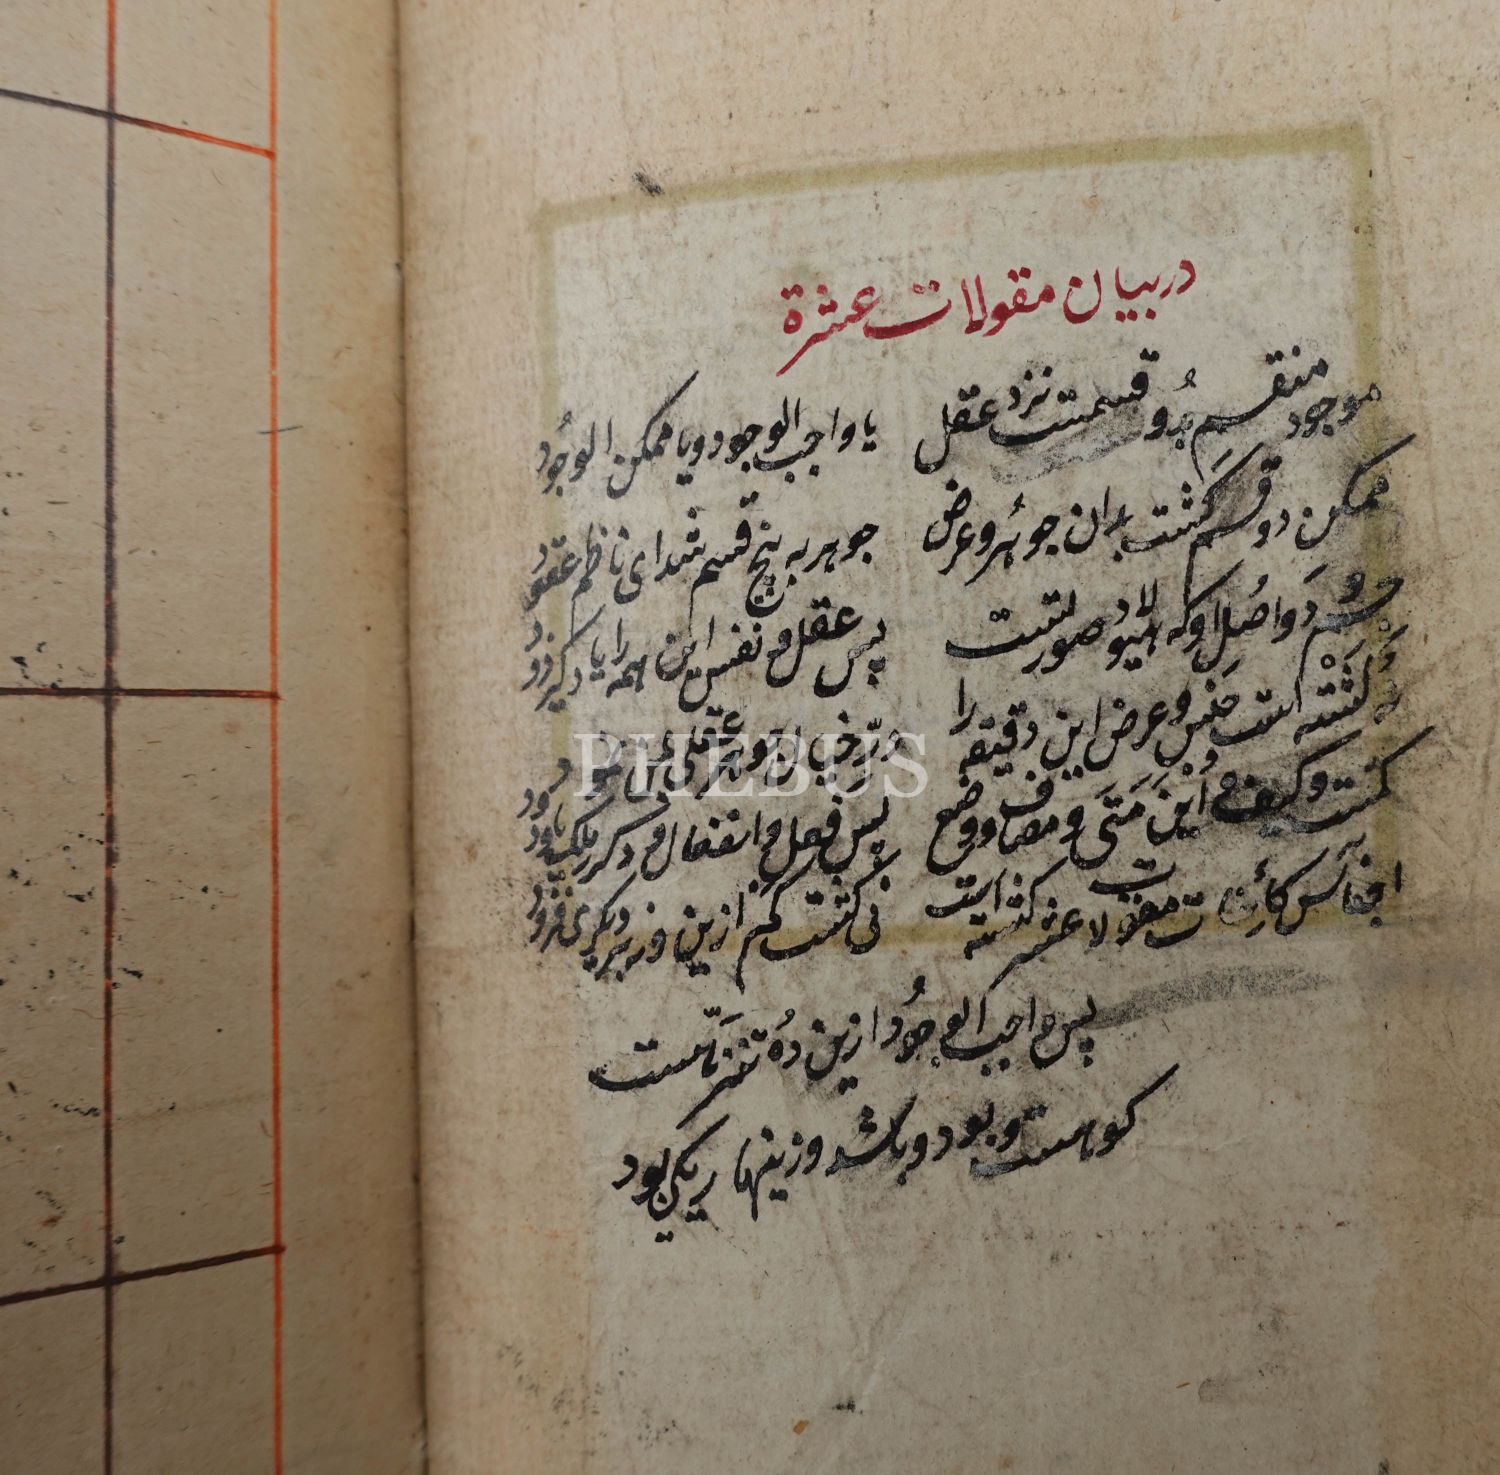 در بیان مقولات عشرة
موجود منقسم بدو قسمست نزد عقل یا واجب الوجود و یا ممکن الوجود
ممکن دو قسم گشت بدان جوهر و عرض جوهر به پنج قسم شد ای ناظم عقود
جسم و دو اصل او که هیولا و صورتست پس عقل و نفس این همه را یاد گیر زود
گشته است جنس و عرض این دقیقه را در خیال جوهر عقلی
کمست و کیف و این متی و مضاف و وضع پس فعل و انفعال و دکر ملک
اجناس کائنات مقولات عشر کشته است نی کشت کم ازین و نه بر دیگری فزود
پس واجب الوجود ازین ده تنزهست
کو هست و بود و باشد و زینها بری بود
PHEBUS